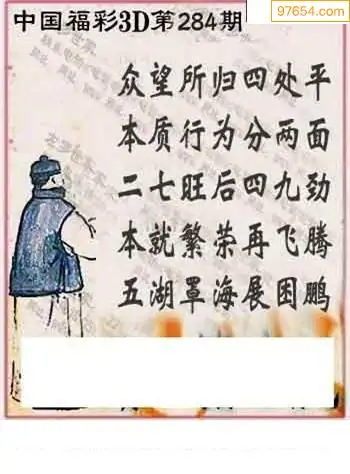 97654.com
中国福彩3D第284期
众望所归四处平
本质行为分两面
二七旺后四九劲
本就繁荣再飞腾
五湖罩海展困鹏